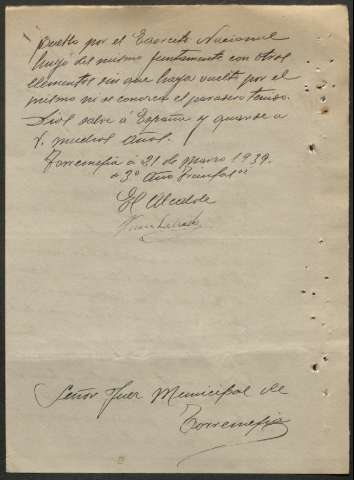 Pueblo por el Ejercito Nacional
huyó del mismo juntamente con otros
elementos sin que haya vuelto por el
mismo ni se conozca el paradero tenido.
Dios salve á España y guarde a
V. muchos años.
Torremejia á 21 de marzo 1939.
3º Año Triunfal
El Alcalde
Señor Juez Municipal de
Torremejia